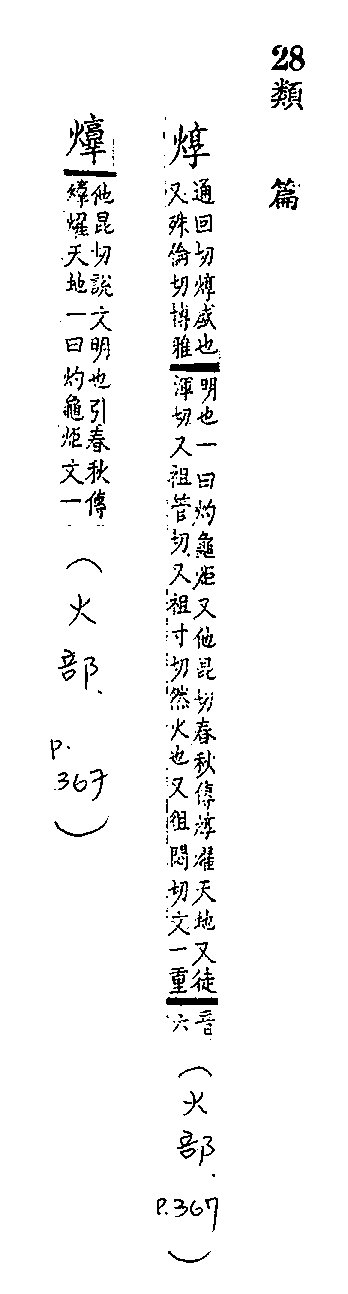 28 類篇
焞
通回切焞盛也
又殊倫切博雅
明也一曰灼龜炬又他昆切春秋傳焞燿天地又徒
渾切又祖管切又祖寸切然火也又徂悶切文一重
音
六
（火部. P.367）
他昆切說文明也引春秋傳
燿天地一曰灼龜炬文一
（火部. P.367）